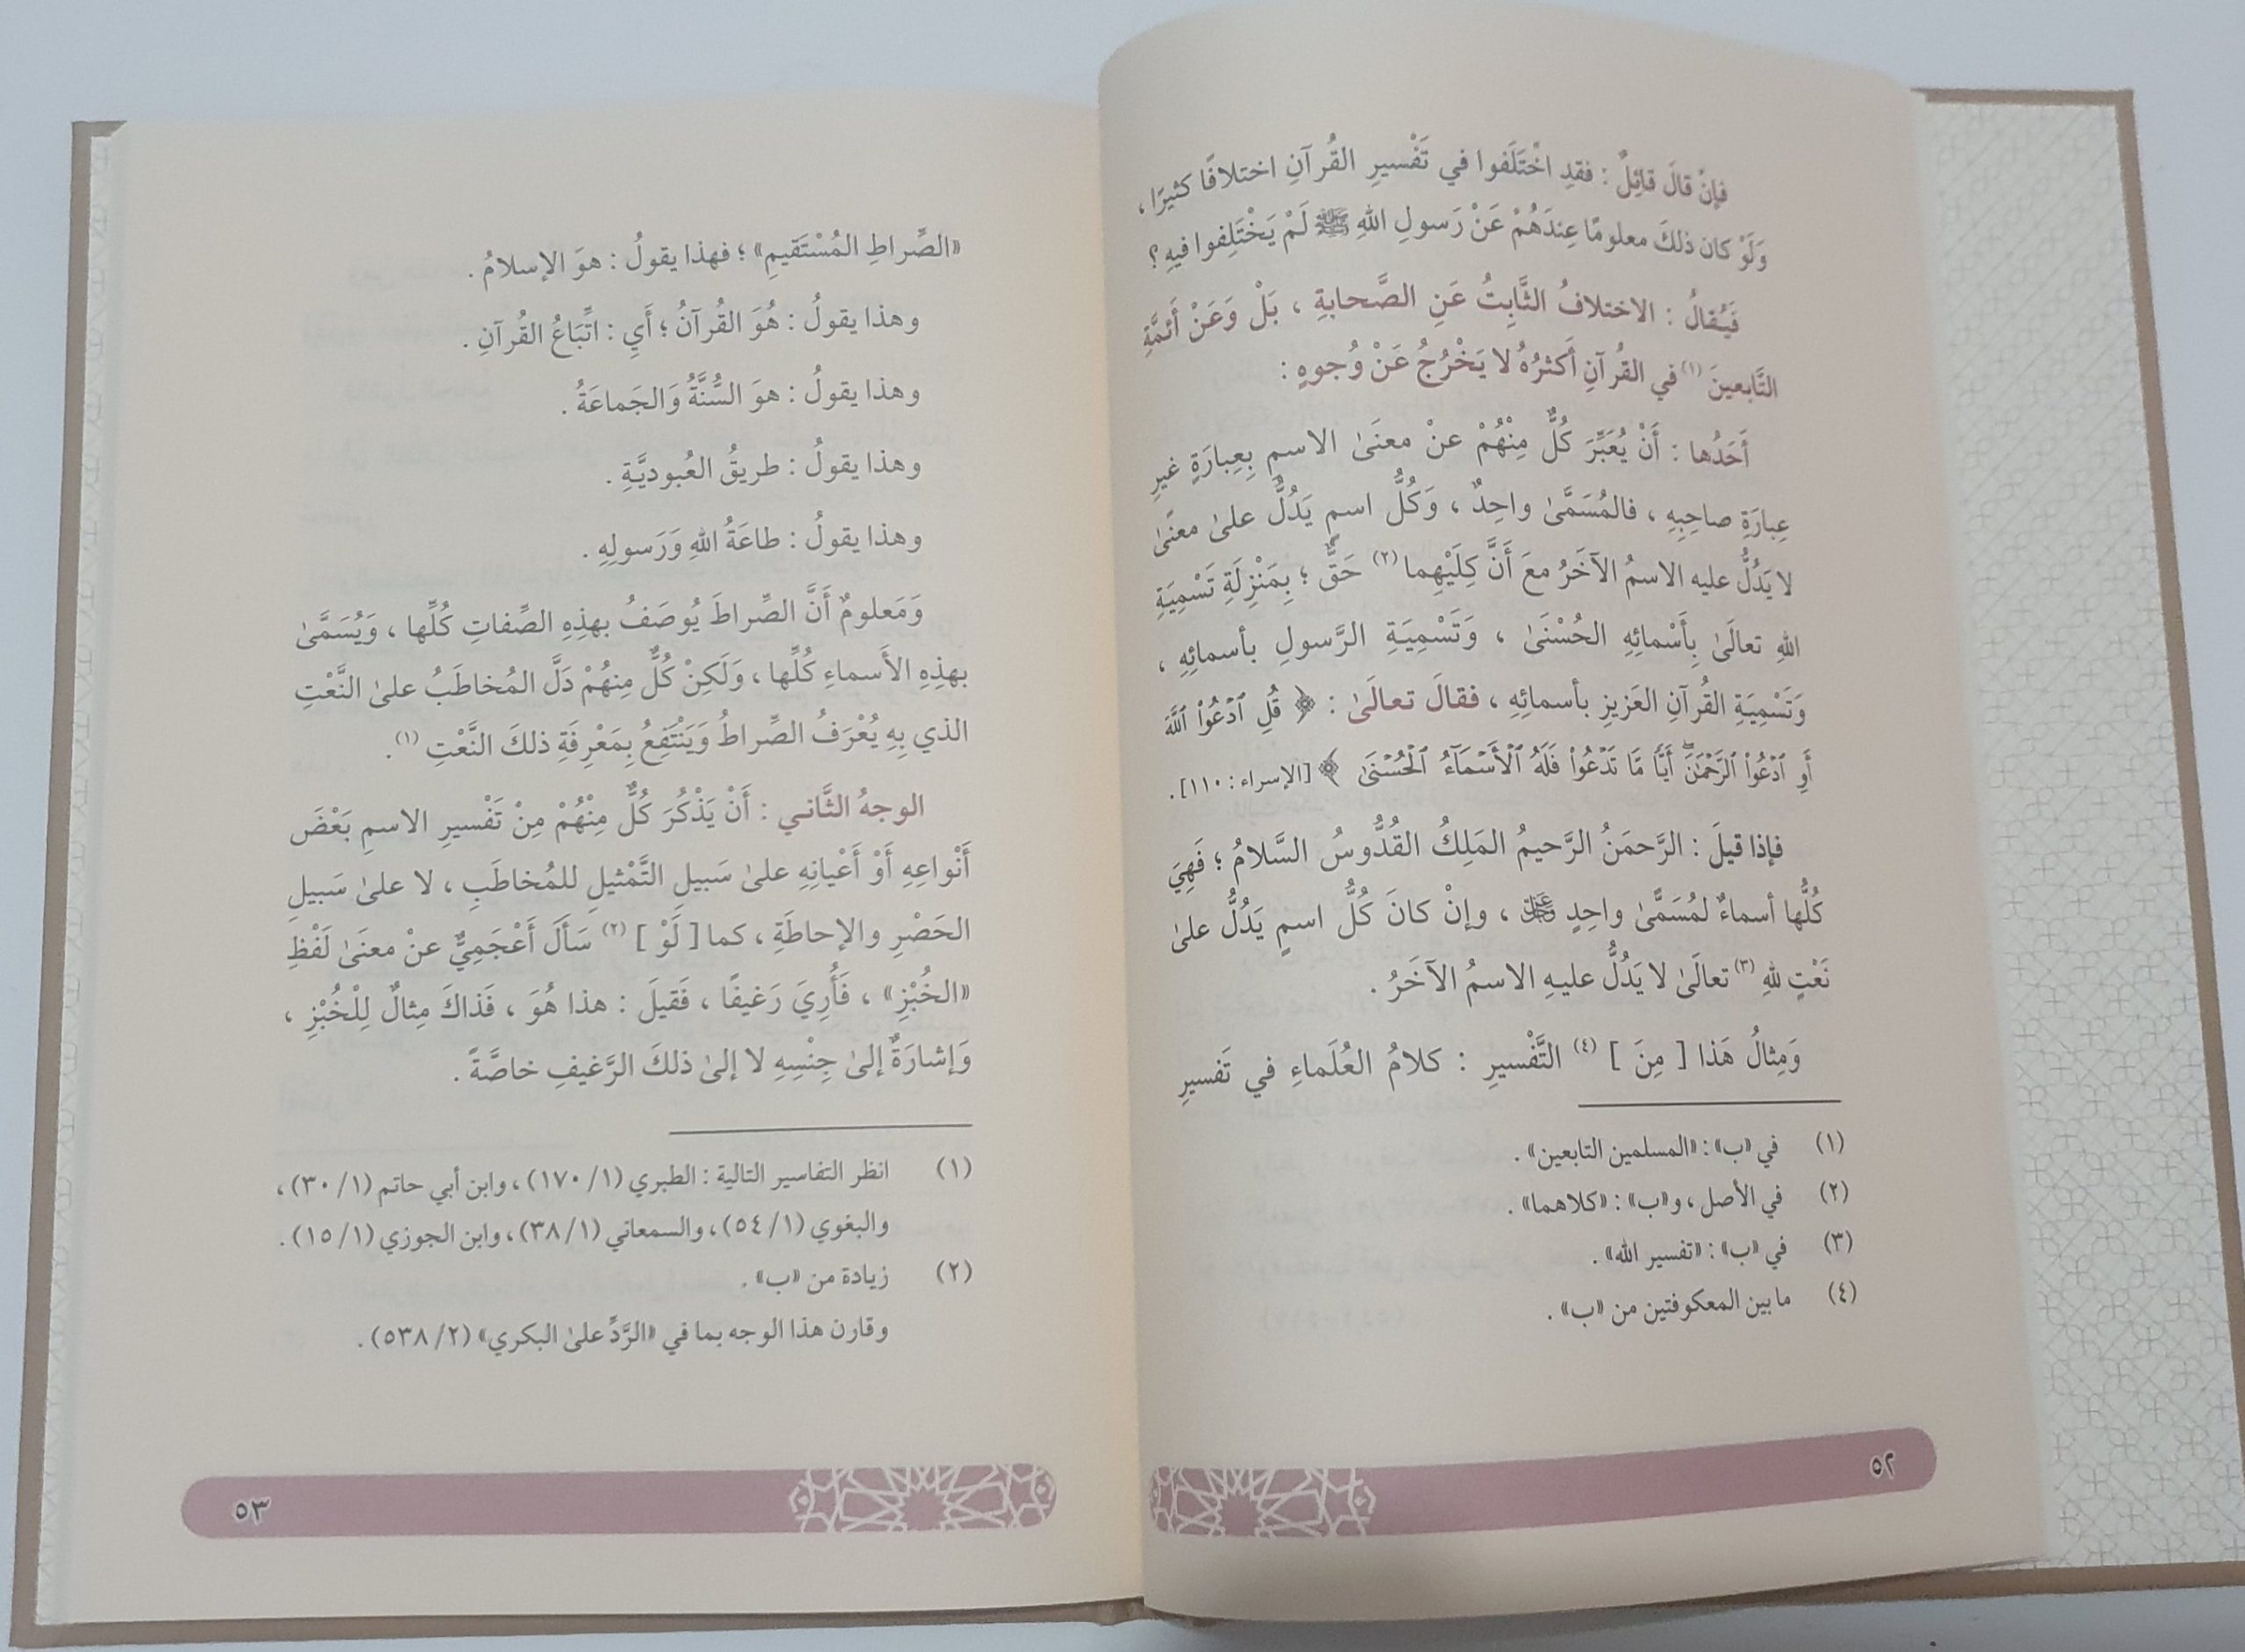 فإنْ قالَ قائِلٌ : فقدِ اخْتَلَفوا في تَفْسيرِ القُرآنِ اختلافًا كثيرًا ،
وَلَوْ كان ذلكَ معلومًا عِندَهُمْ عَنْ رَسولِ اللهِ ﷺ لَمْ يَخْتَلِفوا فيهِ ؟
فَيُقالُ : الاختلافُ الثَّابِتُ عَنِ الصَّحابةِ ، بَلْ وَعَنْ أَئمَّةِ
التَّابعينَ (١) في القُرآنِ أَكثرُهُ لا يَخْرُجُ عَنْ وُجوهٍ :
أَحَدُها : أَنْ يُعَبِّرَ كُلٌّ مِنْهُمْ عنْ معنَىٰ الاسمِ بِعِبارَةٍ غيرِ
عِبارَةِ صاحِبِهِ ، فالمُسَمَّىٰ واحِدٌ ، وَكُلُّ اسمٍ يَدُلُّ علىٰ معنًىٰ
لا يَدُلُّ عليه الاسمُ الآخَرُ معَ أَنَّ كِلَيْهِما (٢) حَقٌّ ؛ بِمَنْزِلَةِ تَسْمِيَةِ
اللهِ تعالَىٰ بِأَسْمائِهِ الحُسْنَىٰ ، وَتَسْمِيَةِ الرَّسولِ بأسمائِهِ ،
وَتَسْمِيَةِ القُرآنِ العَزيزِ بأسمائِهِ ، فقالَ تعالَىٰ : ﴿ قُلِ ٱدْعُوا۟ ٱللَّهَ
أَوِ ٱدْعُوا۟ ٱلرَّحْمَٰنَ ۖ أَيًّا مَّا تَدْعُوا۟ فَلَهُ ٱلْأَسْمَآءُ ٱلْحُسْنَىٰ ﴾ [الإسراء : ١١٠] .
فإذا قيلَ : الرَّحمَنُ الرَّحيمُ المَلِكُ القُدُّوسُ السَّلامُ ؛ فَهِيَ
كُلُّها أسماءٌ لمُسَمًّىٰ واحِدٍ ﷻ ، وإنْ كانَ كُلُّ اسمٍ يَدُلُّ علىٰ
نَعْتٍ للهِ (٣) تعالَىٰ لا يَدُلُّ عليهِ الاسمُ الآخَرُ .
وَمِثالُ هَذا [ مِنَ ] (٤) التَّفْسيرِ : كلامُ العُلَماءِ في تَفسيرِ
(١) في «ب» : «المسلمين التابعين» .
(٢) في الأصل ، و«ب» : «كلاهما» .
(٣) في «ب» : «تفسير الله» .
(٤) ما بين المعكوفتين من «ب» .
٥٢
«الصِّراطِ المُسْتَقيمِ» ؛ فهذا يقولُ : هوَ الإسلامُ .
وهذا يقولُ : هُوَ القُرآنُ ؛ أَيِ : اتِّبَاعُ القُرآنِ .
وهذا يقولُ : هوَ السُّنَّةُ وَالجَماعَةُ .
وهذا يقولُ : طريقُ العُبوديَّةِ .
وهذا يقولُ : طاعَةُ اللهِ وَرَسولِهِ .
وَمَعلومٌ أَنَّ الصِّراطَ يُوصَفُ بهذِهِ الصِّفاتِ كُلِّها ، وَيُسَمَّىٰ
بهذِهِ الأَسماءِ كُلِّها ، وَلَكِنْ كُلٌّ مِنهُمْ دَلَّ المُخاطَبُ علىٰ النَّعْتِ
الذي بِهِ يُعْرَفُ الصِّراطُ وَيَنْتَفِعُ بِمَعْرِفَةِ ذلكَ النَّعْتِ (١) .
الوجهُ الثَّاني : أَنْ يَذْكُرَ كُلٌّ مِنْهُمْ مِنْ تَفْسيرِ الاسمِ بَعْضَ
أَنْواعِهِ أَوْ أَعْيانِهِ علىٰ سَبيلِ التَّمْثيلِ للمُخاطَبِ ، لا علىٰ سَبيلِ
الحَصْرِ والإحاطَةِ ، كما [ لَوْ ] (٢) سَأَلَ أَعْجَمِيٌّ عنْ معنَىٰ لَفْظِ
«الخُبْزِ» ، فَأُرِيَ رَغيفًا ، فَقيلَ : هذا هُوَ ، فَذاكَ مِثالٌ لِلْخُبْزِ ،
وَإشارَةٌ إلىٰ جِنْسِهِ لا إلىٰ ذلكَ الرَّغيفِ خاصَّةً .
(١) انظر التفاسير التالية : الطبري (١/ ١٧٠) ، وابن أبي حاتم (١/ ٣٠) ،
والبغوي (١/ ٥٤) ، والسمعاني (١/ ٣٨) ، وابن الجوزي (١/ ١٥) .
(٢) زيادة من «ب» .
وقارن هذا الوجه بما في «الرَّدِّ علىٰ البكري» (٢/ ٥٣٨) .
٥٣